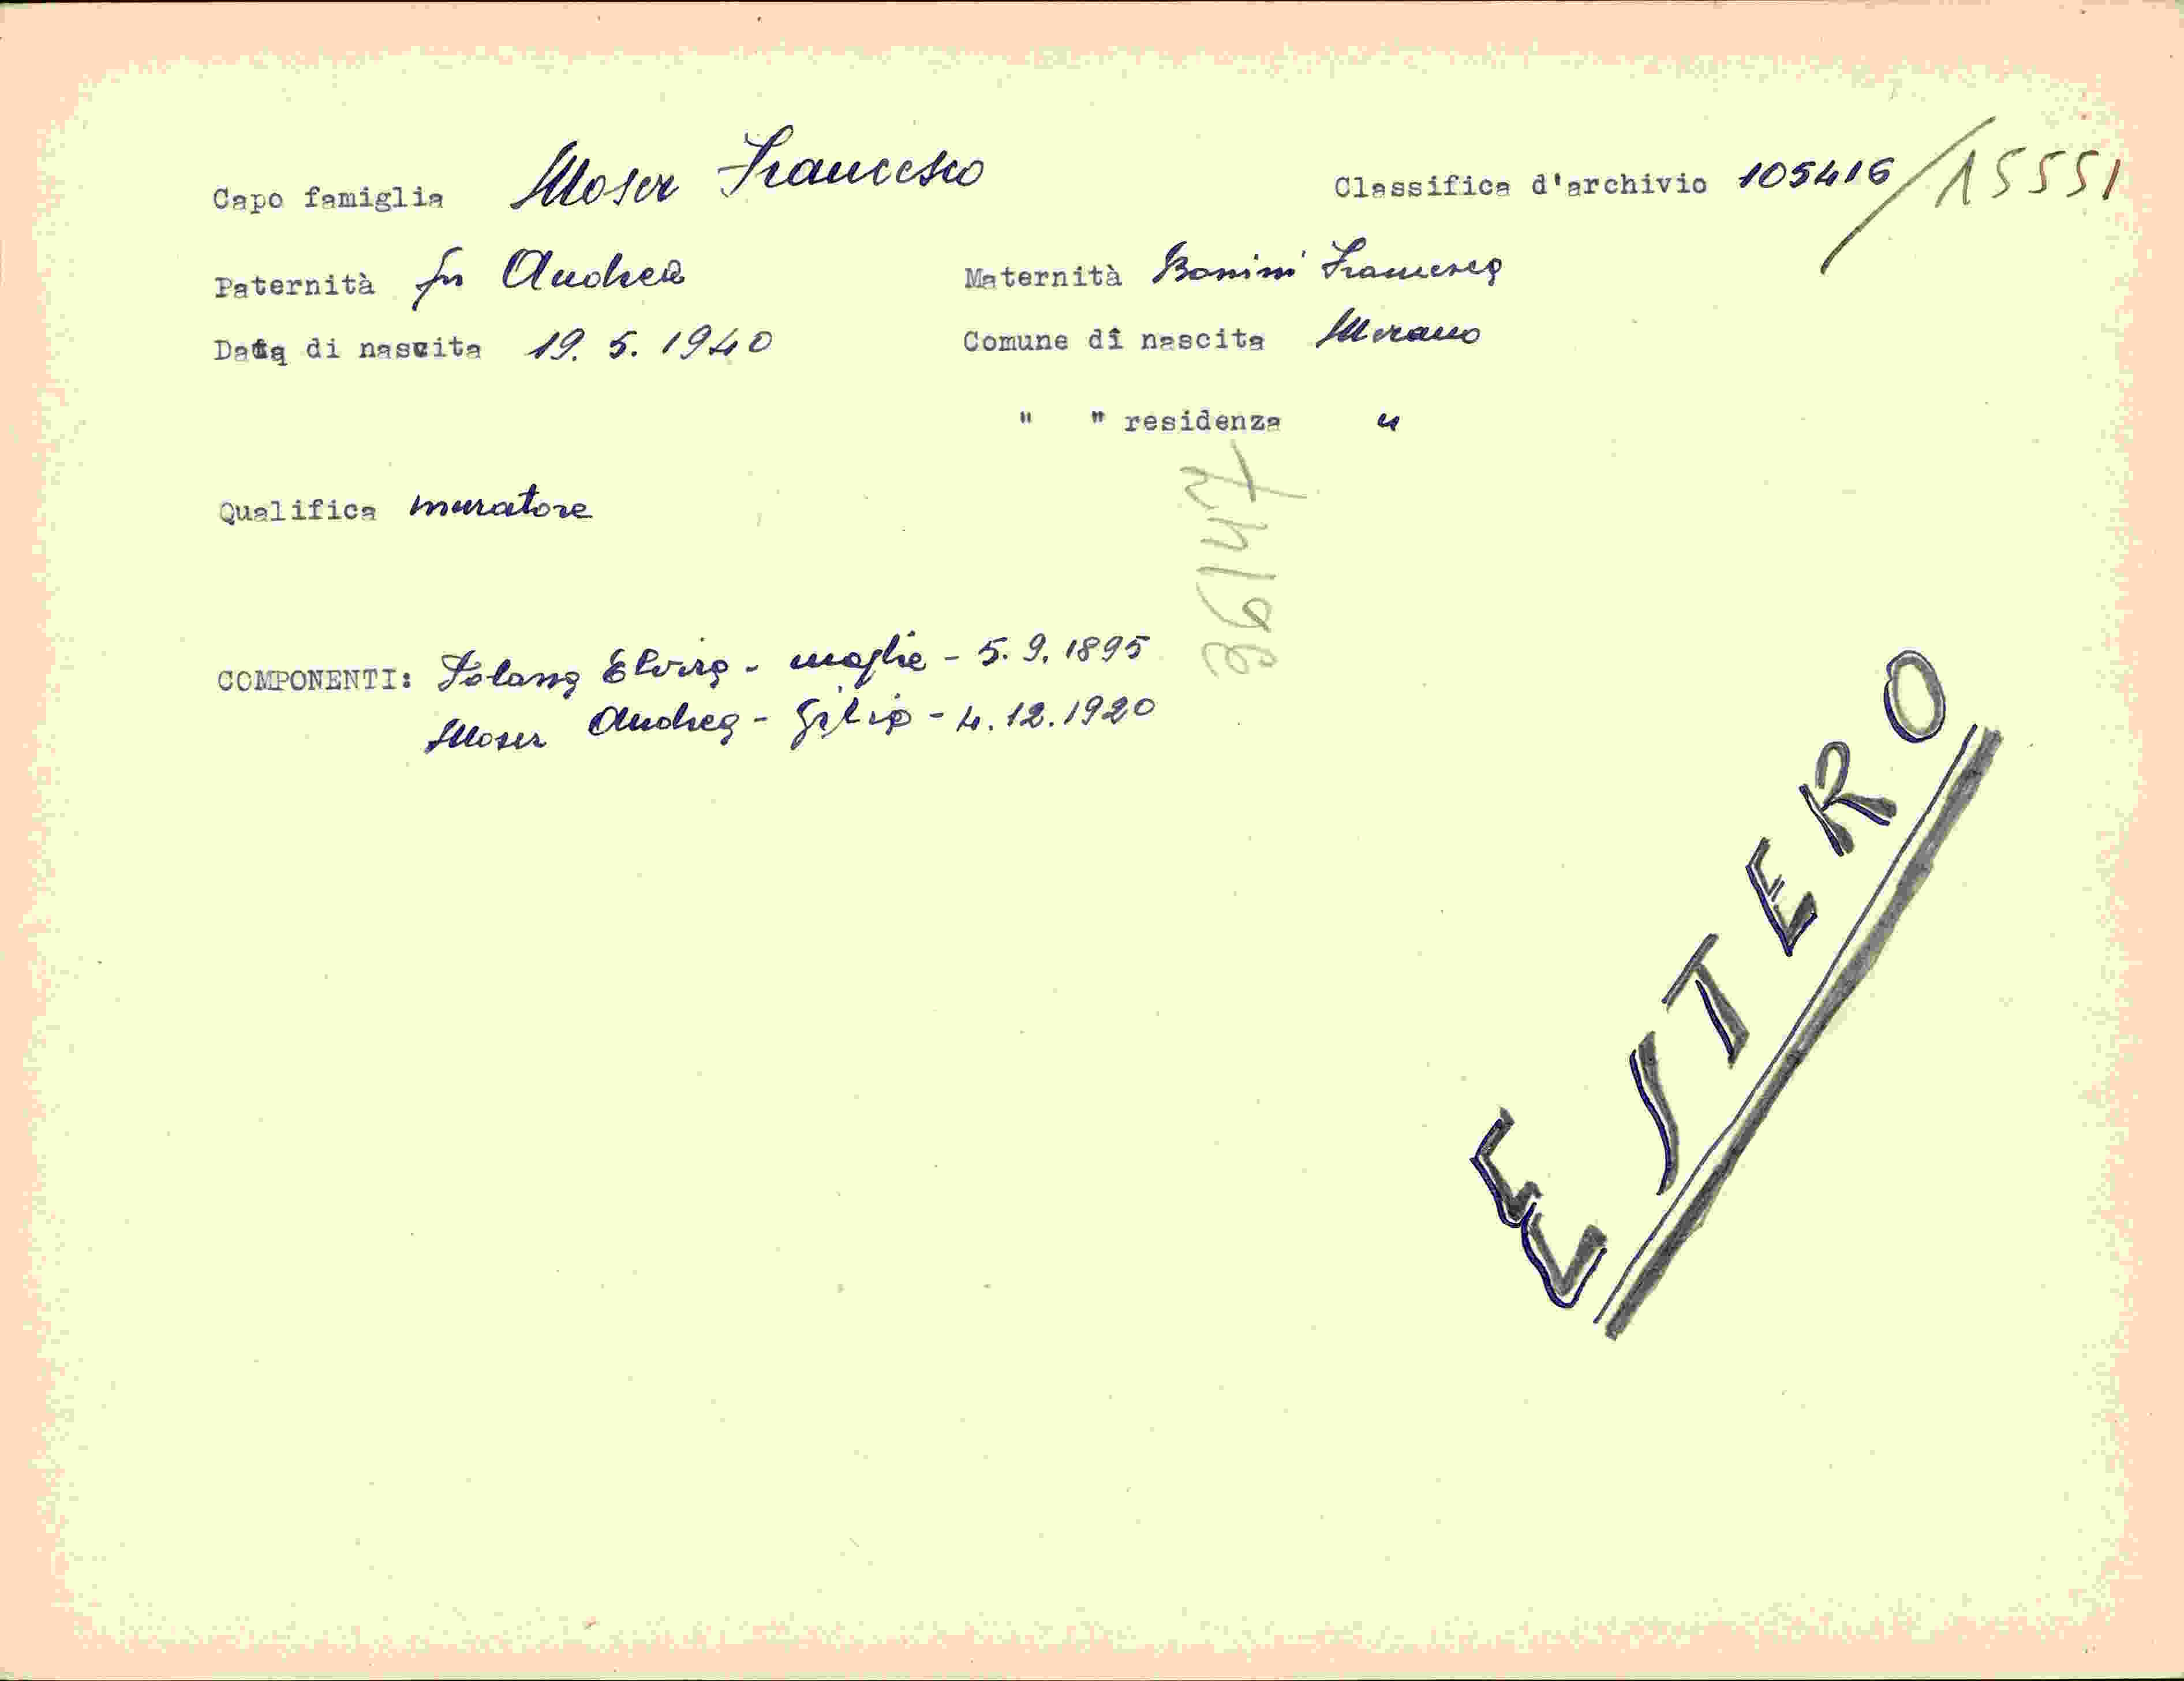 Capo famiglia Moser Francesco Classifica d'archivio 105416/15551
Paternità fu Andrea Maternità Bonini Francesca
Data di nascita 19. 5. 1940 Comune di nascita Merano
" " residenza "
Qualifica muratore
COMPONENTI: Elvira - moglie - 5. 9. 1895
Moser Andrea - figlio - 4. 12. 1920
ESTERO